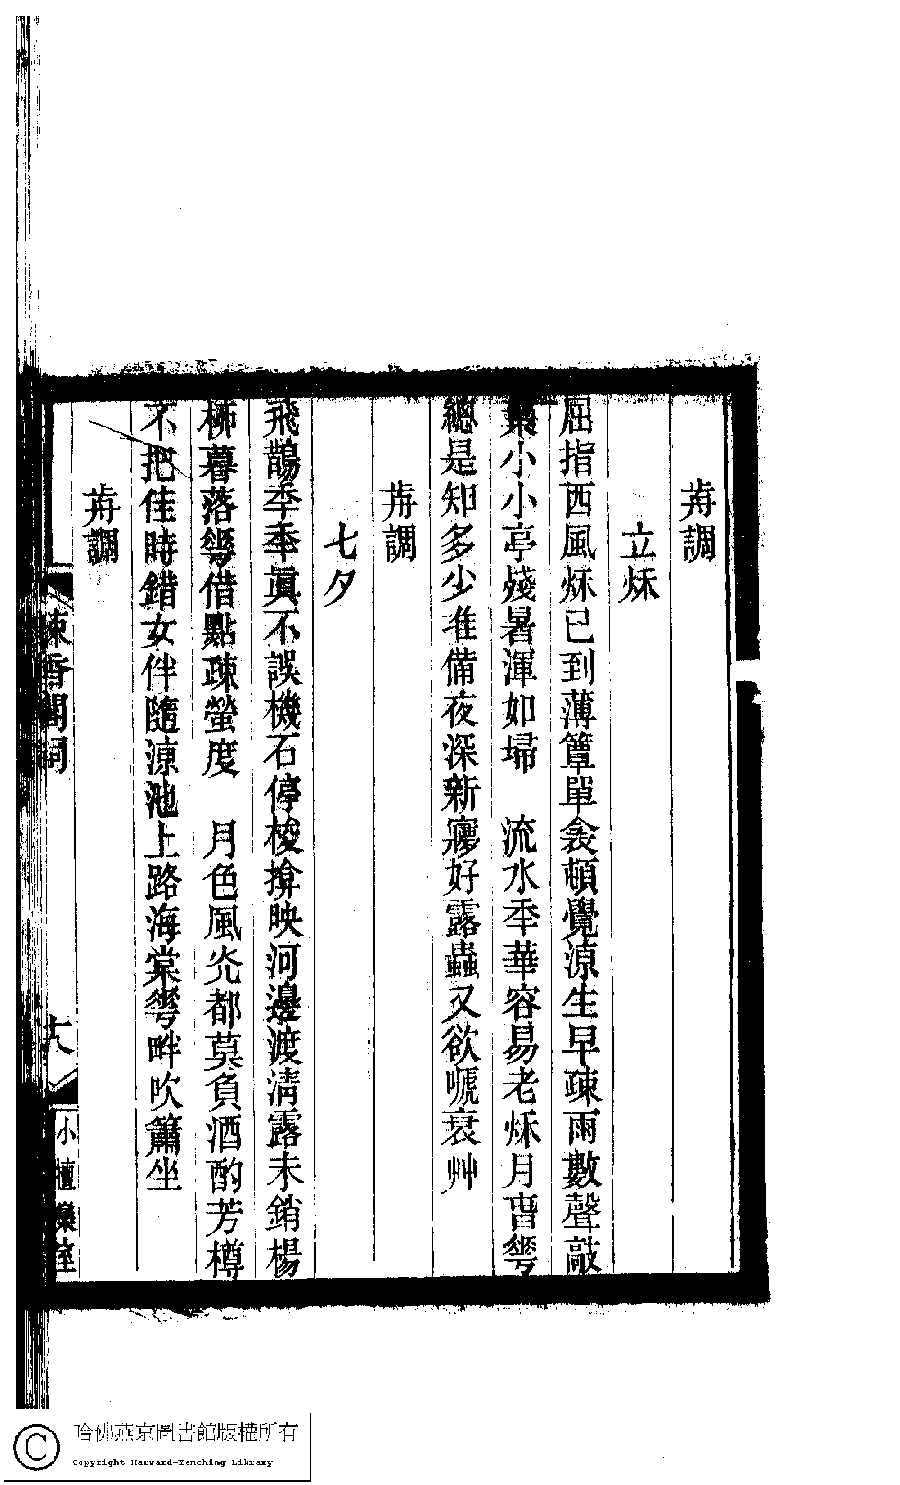 歬調
立秌
屈指西風秌已到薄簟單衾頓覺涼生早疎雨數聲敲
葉小小亭殘暑渾如埽　流水秊華容易老秌月曹雩
總是知多少準備夜深新寱好露蟲又欲嗁衰艸
歬調
七夕
飛鵲秊秊眞不誤機石停梭揜映河邊渡淸露未銷楊
柳暮落雩借點疎螢度　月色風灮都莫負酒酌芳樽
不把佳時錯女伴隨涼池上路海棠雩畔吹簫坐
歬調
棟香閣詞
十八
小檀欒室
哈佛燕京圖書館版權所有
Copyright Harvard-Yenching Library